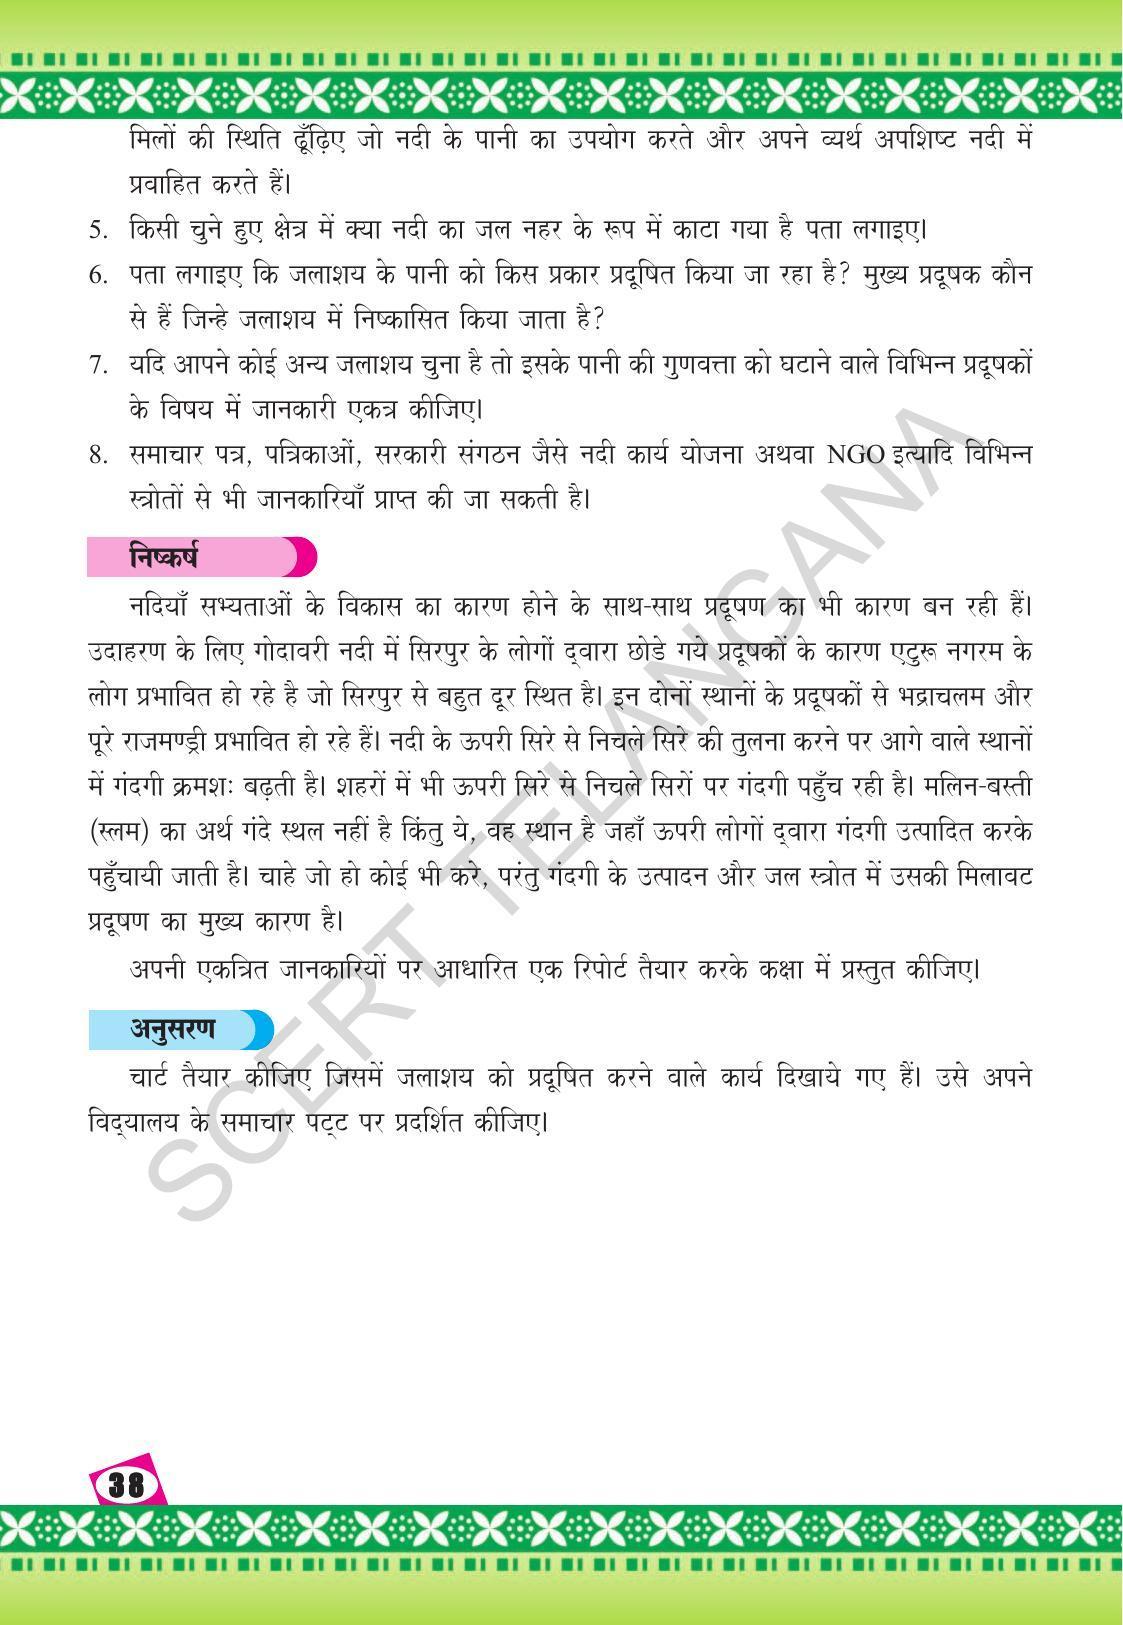 मिलों की स्थिति ढूँढ़िए जो नदी के पानी का उपयोग करते और अपने व्यर्थ अपशिष्ट नदी में
प्रवाहित करते हैं।
5. किसी चुने हुए क्षेत्र में क्या नदी का जल नहर के रूप में काटा गया है पता लगाइए।
6. पता लगाइए कि जलाशय के पानी को किस प्रकार प्रदूषित किया जा रहा है? मुख्य प्रदूषक कौन
से हैं जिन्हे जलाशय में निष्कासित किया जाता है?
7. यदि आपने कोई अन्य जलाशय चुना है तो इसके पानी की गुणवत्ता को घटाने वाले विभिन्न प्रदूषकों
के विषय में जानकारी एकत्र कीजिए।
8. समाचार पत्र, पत्रिकाओं, सरकारी संगठन जैसे नदी कार्य योजना अथवा NGO इत्यादि विभिन्न
स्त्रोतों से भी जानकारियाँ प्राप्त की जा सकती है।
निष्कर्ष
नदियाँ सभ्यताओं के विकास का कारण होने के साथ-साथ प्रदूषण का भी कारण बन रही हैं।
उदाहरण के लिए गोदावरी नदी में सिरपुर के लोगों द्‌वारा छोडे गये प्रदूषकों के कारण एटुरू नगरम के
लोग प्रभावित हो रहे है जो सिरपुर से बहुत दूर स्थित है। इन दोनों स्थानों के प्रदूषकों से भद्राचलम और
पूरे राजमण्ड्री प्रभावित हो रहे हैं। नदी के ऊपरी सिरे से निचले सिरे की तुलना करने पर आगे वाले स्थानों
में गंदगी क्रमशः बढ़ती है। शहरों में भी ऊपरी सिरे से निचले सिरों पर गंदगी पहुँच रही है। मलिन-बस्ती
(स्लम) का अर्थ गंदे स्थल नहीं है किंतु ये, वह स्थान है जहाँ ऊपरी लोगों द्‌वारा गंदगी उत्पादित करके
पहुँचायी जाती है। चाहे जो हो कोई भी करे, परंतु गंदगी के उत्पादन और जल स्त्रोत में उसकी मिलावट
प्रदूषण का मुख्य कारण है।
अपनी एकत्रित जानकारियों पर आधारित एक रिपोर्ट तैयार करके कक्षा में प्रस्तुत कीजिए।
अनुसरण
चार्ट तैयार कीजिए जिसमें जलाशय को प्रदूषित करने वाले कार्य दिखाये गए हैं। उसे अपने
विद्‌यालय के समाचार पट्‌ट पर प्रदर्शित कीजिए।
SCERT TELANGANA
38